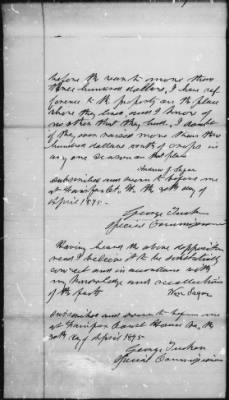 before the war to more than
three hundred dollars, I have ref
erence to the property on the place
where they lived and I know of
no other that they had, I doubt
if they ever raised more than two
hundred dollars worth of crops in
any one season on that place
Subscribed and sworn to before me
at the 20th day of
April 1895.
George
Special Commissioner
Having heard the above deposition
read I believe it to be substantially
correct and in accordance with
my knowledge and recollection
of the facts
Subscribed and sworn to before me
at Court House the
20th day of April 1895
George
Special Commissioner